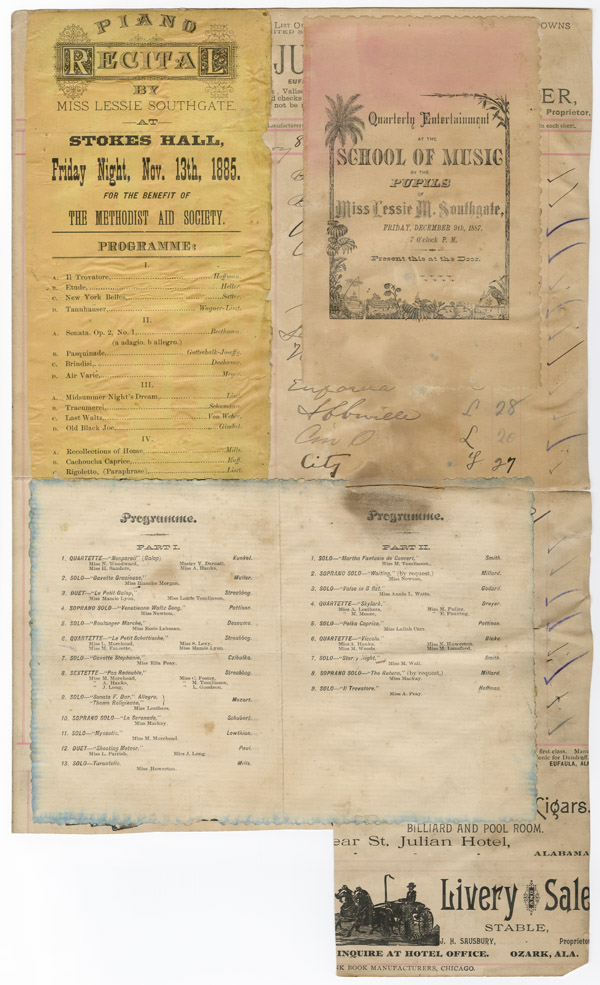 PIANO
RECITAL
BY
MISS LESSIE SOUTHGATE,
AT
STOKES HALL,
Friday Night, Nov. 13th, 1885.
FOR THE BENEFIT OF
THE METHODIST AID SOCIETY.
PROGRAMME:
I.
A. Il Trovatore, Hoffman.
B. Etude, Heller.
C. New York Belles, Sutter.
D. Tannhauser, Wagner-Liszt.
II.
A. Sonata, Op. 2, No. 1, Beethoven.
(a adagio. b allegro.)
B. Pasquinade, Gottschalk
C. Brindisi,
D. Air Varie,
III.
A. Midsummer Night's Dream,
B. Traeumerei, Schumann.
C. Last Waltz, Von Weber.
D. Old Black Joe, Gimbel.
IV.
A. Recollections of Home, Mills.
B. Cachoucha Caprice, Raff.
Rigoletto, (Paraphrase), Liszt.
List O
OWNS
JU
ER,
EUFA
Proprietor.
d checks
not be
in each sheet.
Quarterly Entertainment
AT THE
SCHOOL OF MUSIC
BY THE
PUPILS
OF
Miss Lessie M. Southgate,
FRIDAY, DECEMBER 9th, 1887.
7 O'clock P. M.
Present this at the Door.
28
City 27
Programme.
PART I.
1. QUARTETTE—"Bonparei" (Galop) Kunkel.
Miss N. Woodward, Master Y. Dernall,
Miss H. Sanders, Miss A. Hanks,
2. SOLO—"Gavotte Gracieuse," Muller.
Miss Blanche Morgan.
3. DUET—"Le Petit Galop," Streabbog.
Miss Mamie Lyon, Miss Lourie Tomlinson.
4. SOPRANO SOLO—"Venetienne Waltz Song," Pattison.
Miss Newton.
5. SOLO—"Boulanger Marche,"
Miss Rosie Lehman.
6. QUARTETTE—"Le Petit Schottische," Streabbog.
Miss L. Morehead, Miss S. Levy,
Miss M. Fulcette, Miss Mamie Lyon.
7. SOLO—"Gavotte Stephanie," Czibulka.
Miss Ella Peay.
8. SEXTETTE—"Pas Redouble," Streabbog.
Miss M. Morehead, Miss C. Feotey,
" A. Hanks, " M. Tomlinson,
" J. Long, " L. Goodson.
9. SOLO—"Sonata F. Dur." Allegro,
"Thema Religiento," Mozart.
Miss Leathers.
10. SOPRANO SOLO—"La Serenade," Schubert.
Miss Mackay.
11. SOLO—"Myosotis," Lowthian.
Miss M. Morehead.
12. DUET—"Shooting Meteor," Paul.
Miss L. Parrish, Miss J. Long.
13. SOLO—Tarantelle. Mills.
Miss Howerton.
Programme.
PART II.
1. SOLO—"Martha Fantasie de Concert," Smith.
Miss M. Tomlinson.
2. SOPRANO SOLO—"Waiting," (by request.) Millard.
Miss Newton.
3. SOLO—Valse in B flat, Godard.
Miss Annie L. Watts.
4. QUARTETTE—"Skylark," Dreyer.
Miss A. Leathers, Miss M. Fuller,
" M. Moore, " D. Pruating.
5. SOLO—"Polka Caprice," Pattison.
Miss Lullah Carr.
6. QUARTETTE—"Vincula" Blake.
Miss A. Hanks, Miss N. Howerton,
Miss M. Woods, Miss M. Lunsford.
7. SOLO—"Starry Night," Smith.
Miss M. Wall.
8. SOPRANO SOLO—"The Nature," (by request.) Millard.
Miss Mackay.
9. SOLO—"Il Trovatore." Hoffman.
Miss A. Peay.
first-class.
onic for Dandruff.
EUFAULA, ALA
Cigars.
BILLIARD AND POOL ROOM.
ear St. Julian Hotel,
ALABAMA
Livery and Sale
STABLE,
J. H. SAUSBURY, Proprietor
INQUIRE AT HOTEL OFFICE. OZARK, ALA.
NK BOOK MANUFACTURERS, CHICAGO.